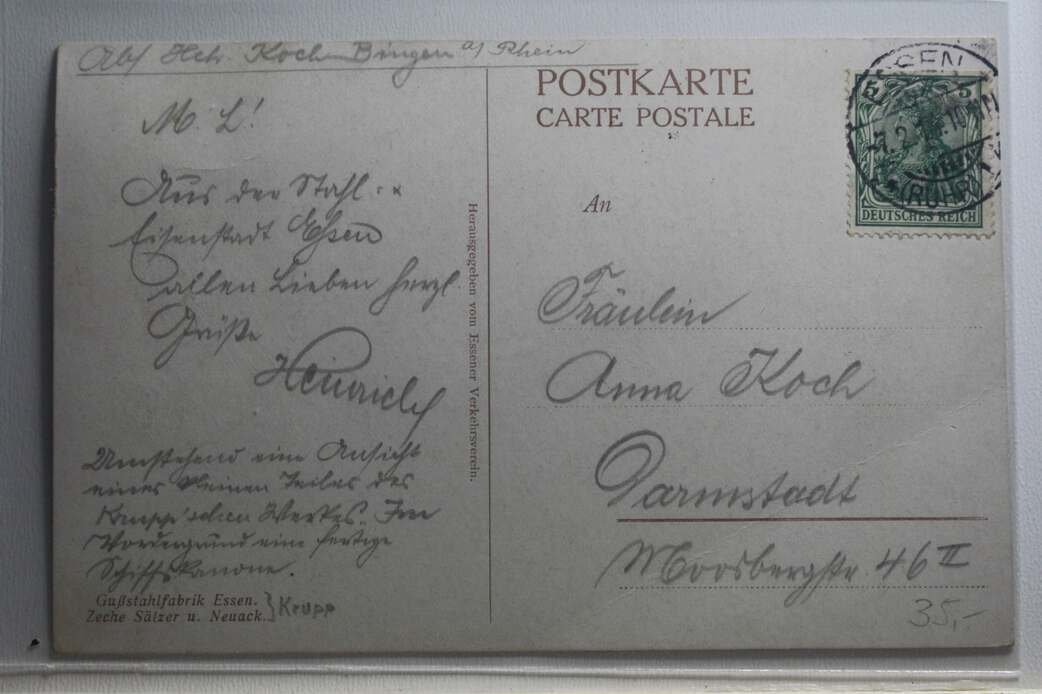 Abs Hch Koch Bingen a/ Rhein
M. L!
Aus der Stahl- &
Eisenstadt Essen
allen Lieben herzl.
Grüße
Heinrich
Umstehend eine Ansicht
eines kleinen Teiles des
Krupp'schen Werkes. Im
Vordergrund eine fertige
Schiffskanone.
Gußstahlfabrik Essen.
Zeche Sälzer u. Neuack.
} Krupp
Herausgegeben vom Essener Verkehrsverein.
POSTKARTE
CARTE POSTALE
An
5 5
DEUTSCHES REICH
ESSEN
(RUHR)
Fräulein
Anna Koch
Darmstadt
Moosbergstr. 46 II
35,-